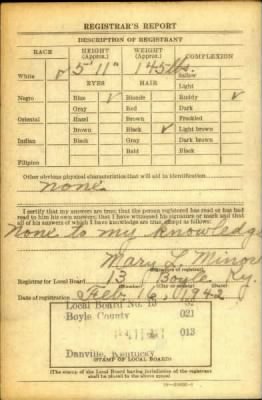 REGISTRAR'S REPORT
DESCRIPTION OF REGISTRANT
RACE HEIGHT (Approx.) WEIGHT (Approx.) COMPLEXION
5' 11" 145 lbs. Sallow
White ✓ EYES HAIR Light
Negro Blue ✓ Blonde Ruddy ✓
Gray Red Dark
Oriental Hazel Brown Freckled
Brown Black ✓ Light brown
Indian Black Gray Dark brown
Bald Black
Filipino
Other obvious physical characteristics that will aid in identification
none.
I certify that my answers are true; that the person registered has read or has had
read to him his own answers; that I have witnessed his signature or mark and that
all of his answers of which I have knowledge are true, except as follows:
None to my knowledge
Mary L. Minor
(Signature of registrar)
Registrar for Local Board 13 Boyle Ky
(Number)
Date of registration Feb. 16, 1942
Local Board No. 13
Boyle County 021
013
Danville, Kentucky
(STAMP OF LOCAL BOARD)
(The stamp of the Local Board having jurisdiction of the registrant
shall be placed in the above space)